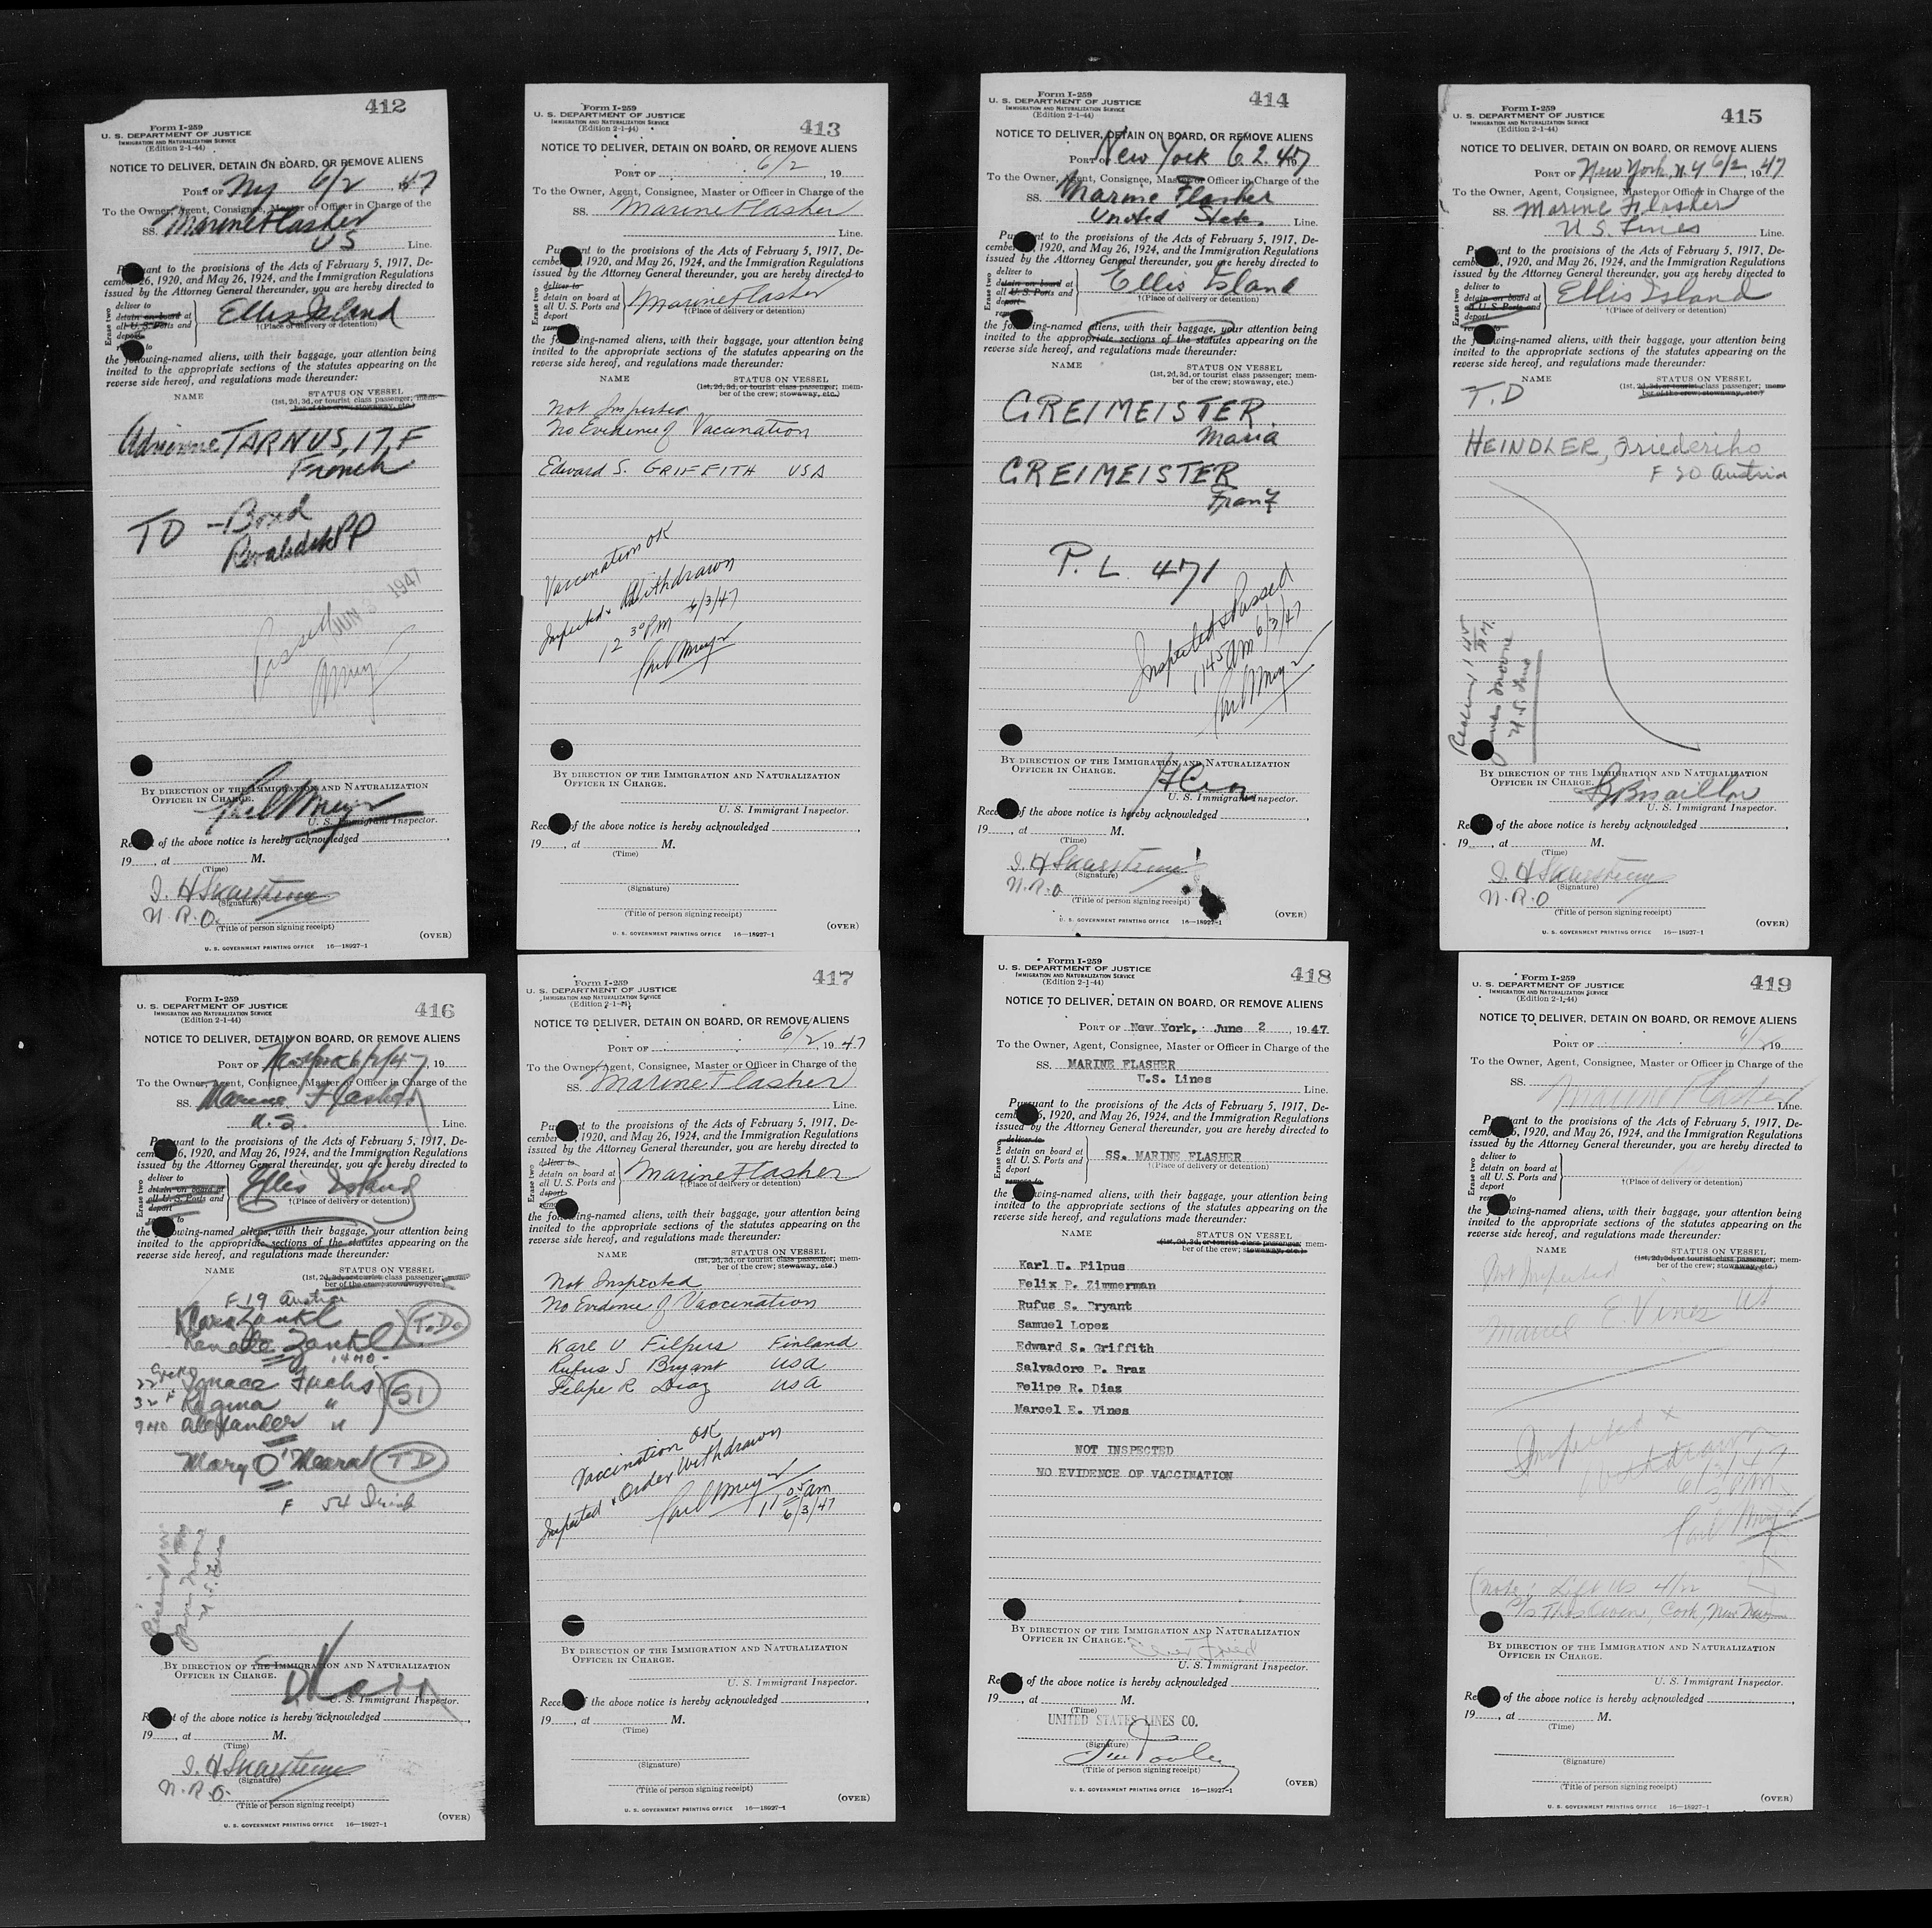 412
Form I-259
U. S. DEPARTMENT OF JUSTICE
IMMIGRATION AND NATURALIZATION SERVICE
(Edition 2-1-44)
NOTICE TO DELIVER, DETAIN ON BOARD, OR REMOVE ALIENS
PORT OF NY 6/2, 1947
To the Owner, Agent, Consignee, Master or Officer in Charge of the
SS. Marine Flasher
US Line.
Pursuant to the provisions of the Acts of February 5, 1917, De-
cember 26, 1920, and May 26, 1924, and the Immigration Regulations
issued by the Attorney General thereunder, you are hereby directed to
Erase two
deliver to
detain on board at
all U. S. Ports and
deport
remove to
Ellis Island
†(Place of delivery or detention)
the following-named aliens, with their baggage, your attention being
invited to the appropriate sections of the statutes appearing on the
reverse side hereof, and regulations made thereunder:
NAME STATUS ON VESSEL
(1st, 2d, 3d, or tourist class passenger; mem-
ber of the crew; stowaway, etc.)
Adrienne TARNUS, 17, F
French
TO - Bond
PP
Passed JUN 3 1947
BY DIRECTION OF THE IMMIGRATION AND NATURALIZATION
OFFICER IN CHARGE.
U. S. Immigrant Inspector.
Receipt of the above notice is hereby acknowledged
19...., at M.
(Time)
(Signature)
N. R. O.
(Title of person signing receipt)
(OVER)
U. S. GOVERNMENT PRINTING OFFICE 16—18927-1
413
Form I-259
U. S. DEPARTMENT OF JUSTICE
IMMIGRATION AND NATURALIZATION SERVICE
(Edition 2-1-44)
NOTICE TO DELIVER, DETAIN ON BOARD, OR REMOVE ALIENS
PORT OF 6/2, 19
To the Owner, Agent, Consignee, Master or Officer in Charge of the
SS. Marine Flasher
Line.
Pursuant to the provisions of the Acts of February 5, 1917, De-
cember 26, 1920, and May 26, 1924, and the Immigration Regulations
issued by the Attorney General thereunder, you are hereby directed to
Erase two
deliver to
detain on board at
all U. S. Ports and
deport
remove to
Marine Flasher
†(Place of delivery or detention)
the following-named aliens, with their baggage, your attention being
invited to the appropriate sections of the statutes appearing on the
reverse side hereof, and regulations made thereunder:
NAME STATUS ON VESSEL
(1st, 2d, 3d, or tourist class passenger; mem-
ber of the crew; stowaway, etc.)
Not Inspected
No Evidence of Vaccination
Edward S. GRIFFITH USA
Vaccination OK
Inspected & Withdrawn
12 30 PM 6/3/47
BY DIRECTION OF THE IMMIGRATION AND NATURALIZATION
OFFICER IN CHARGE.
U. S. Immigrant Inspector.
Receipt of the above notice is hereby acknowledged
19...., at M.
(Time)
(Signature)
(Title of person signing receipt)
(OVER)
U. S. GOVERNMENT PRINTING OFFICE 16—18927-1
414
Form I-259
U. S. DEPARTMENT OF JUSTICE
IMMIGRATION AND NATURALIZATION SERVICE
(Edition 2-1-44)
NOTICE TO DELIVER, DETAIN ON BOARD, OR REMOVE ALIENS
PORT OF New York 6. 2. 47
To the Owner, Agent, Consignee, Master or Officer in Charge of the
SS. Marine Flasher
United States Line.
Pursuant to the provisions of the Acts of February 5, 1917, De-
cember 26, 1920, and May 26, 1924, and the Immigration Regulations
issued by the Attorney General thereunder, you are hereby directed to
Erase two
deliver to
detain on board at
all U. S. Ports and
deport
Ellis Island
†(Place of delivery or detention)
the following-named aliens, with their baggage, your attention being
invited to the appropriate sections of the statutes appearing on the
reverse side hereof, and regulations made thereunder:
NAME STATUS ON VESSEL
(1st, 2d, 3d, or tourist class passenger; mem-
ber of the crew; stowaway, etc.)
GREIMEISTER
Maria
GREIMEISTER
Franz
P. L. 471
Inspected & Passed
1145 AM 6/3/47
BY DIRECTION OF THE IMMIGRATION AND NATURALIZATION
OFFICER IN CHARGE.
U. S. Immigrant Inspector.
Receipt of the above notice is hereby acknowledged
19...., at M.
(Time)
(Signature)
N. R. O
(Title of person signing receipt)
(OVER)
U. S. GOVERNMENT PRINTING OFFICE 16—18927-1
415
Form I-259
U. S. DEPARTMENT OF JUSTICE
IMMIGRATION AND NATURALIZATION SERVICE
(Edition 2-1-44)
NOTICE TO DELIVER, DETAIN ON BOARD, OR REMOVE ALIENS
PORT OF New York, N.Y 6/2, 1947
To the Owner, Agent, Consignee, Master or Officer in Charge of the
SS. Marine Flasher
U.S. Lines Line.
Pursuant to the provisions of the Acts of February 5, 1917, De-
cember 26, 1920, and May 26, 1924, and the Immigration Regulations
issued by the Attorney General thereunder, you are hereby directed to
Erase two
deliver to
detain on board at
all U. S. Ports and
deport
remove to
Ellis Island
†(Place of delivery or detention)
the following-named aliens, with their baggage, your attention being
invited to the appropriate sections of the statutes appearing on the
reverse side hereof, and regulations made thereunder:
NAME STATUS ON VESSEL
(1st, 2d, 3d, or tourist class passenger; mem-
ber of the crew; stowaway, etc.)
T. D
HEINDLER, Friederike
F 20 Austria
BY DIRECTION OF THE IMMIGRATION AND NATURALIZATION
OFFICER IN CHARGE.
U. S. Immigrant Inspector.
Receipt of the above notice is hereby acknowledged
19...., at M.
(Time)
(Signature)
N. R. O
(Title of person signing receipt)
(OVER)
U. S. GOVERNMENT PRINTING OFFICE 16—18927-1
416
Form I-259
U. S. DEPARTMENT OF JUSTICE
IMMIGRATION AND NATURALIZATION SERVICE
(Edition 2-1-44)
NOTICE TO DELIVER, DETAIN ON BOARD, OR REMOVE ALIENS
PORT OF 6/2/47, 19
To the Owner, Agent, Consignee, Master or Officer in Charge of the
SS. Marine Flasher
U. S. Line.
Pursuant to the provisions of the Acts of February 5, 1917, De-
cember 26, 1920, and May 26, 1924, and the Immigration Regulations
issued by the Attorney General thereunder, you are hereby directed to
Erase two
deliver to
detain on board at
all U. S. Ports and
deport
remove to
Ellis Island
†(Place of delivery or detention)
the following-named aliens, with their baggage, your attention being
invited to the appropriate sections of the statutes appearing on the
reverse side hereof, and regulations made thereunder:
NAME STATUS ON VESSEL
(1st, 2d, 3d, or tourist class passenger; mem-
ber of the crew; stowaway, etc.)
F 19 Austria
Klara Zankl T. D.
Renate Zankl
14 MO.
Ignacz Fuchs SI
32 F Regina "
9 MO Alexander "
Mary O'Meara TD
F 54 Irish
BY DIRECTION OF THE IMMIGRATION AND NATURALIZATION
OFFICER IN CHARGE.
U. S. Immigrant Inspector.
Receipt of the above notice is hereby acknowledged
19...., at M.
(Time)
(Signature)
N. R. O.
(Title of person signing receipt)
(OVER)
U. S. GOVERNMENT PRINTING OFFICE 16—18927-1
417
Form I-259
U. S. DEPARTMENT OF JUSTICE
IMMIGRATION AND NATURALIZATION SERVICE
(Edition 2-1-44)
NOTICE TO DELIVER, DETAIN ON BOARD, OR REMOVE ALIENS
PORT OF 6/2, 1947
To the Owner, Agent, Consignee, Master or Officer in Charge of the
SS. Marine Flasher
Line.
Pursuant to the provisions of the Acts of February 5, 1917, De-
cember 26, 1920, and May 26, 1924, and the Immigration Regulations
issued by the Attorney General thereunder, you are hereby directed to
Erase two
deliver to
detain on board at
all U. S. Ports and
deport
remove to
Marine Flasher
†(Place of delivery or detention)
the following-named aliens, with their baggage, your attention being
invited to the appropriate sections of the statutes appearing on the
reverse side hereof, and regulations made thereunder:
NAME STATUS ON VESSEL
(1st, 2d, 3d, or tourist class passenger; mem-
ber of the crew; stowaway, etc.)
Not Inspected
No Evidence of Vaccination
Karl U Filpus Finland
Rufus S Bryant USA
Felipe R Diaz USA
Vaccination OK
Inspected & Order Withdrawn
11 05 AM
6/3/47
BY DIRECTION OF THE IMMIGRATION AND NATURALIZATION
OFFICER IN CHARGE.
U. S. Immigrant Inspector.
Receipt of the above notice is hereby acknowledged
19...., at M.
(Time)
(Signature)
(Title of person signing receipt)
(OVER)
U. S. GOVERNMENT PRINTING OFFICE 16—18927-1
418
Form I-259
U. S. DEPARTMENT OF JUSTICE
IMMIGRATION AND NATURALIZATION SERVICE
(Edition 2-1-44)
NOTICE TO DELIVER, DETAIN ON BOARD, OR REMOVE ALIENS
PORT OF New York, June 2, 1947.
To the Owner, Agent, Consignee, Master or Officer in Charge of the
SS. MARINE FLASHER
U.S. Lines Line.
Pursuant to the provisions of the Acts of February 5, 1917, De-
cember 26, 1920, and May 26, 1924, and the Immigration Regulations
issued by the Attorney General thereunder, you are hereby directed to
Erase two
deliver to
detain on board at
all U. S. Ports and
deport
remove to
SS. MARINE FLASHER
†(Place of delivery or detention)
the following-named aliens, with their baggage, your attention being
invited to the appropriate sections of the statutes appearing on the
reverse side hereof, and regulations made thereunder:
NAME STATUS ON VESSEL
(1st, 2d, 3d, or tourist class passenger; mem-
ber of the crew; stowaway, etc.)
Karl U. Filpus
Felix P. Zimmerman
Rufus S. Bryant
Samuel Lopez
Edward S. Griffith
Salvadore P. Braz
Felipe R. Diaz
Marcel E. Vines
NOT INSPECTED
NO EVIDENCE OF VACCINATION
BY DIRECTION OF THE IMMIGRATION AND NATURALIZATION
OFFICER IN CHARGE.
U. S. Immigrant Inspector.
Receipt of the above notice is hereby acknowledged
19...., at M.
(Time)
UNITED STATES LINES CO.
(Signature)
(Title of person signing receipt)
(OVER)
U. S. GOVERNMENT PRINTING OFFICE 16—18927-1
419
Form I-259
U. S. DEPARTMENT OF JUSTICE
IMMIGRATION AND NATURALIZATION SERVICE
(Edition 2-1-44)
NOTICE TO DELIVER, DETAIN ON BOARD, OR REMOVE ALIENS
PORT OF 6/2 19
To the Owner, Agent, Consignee, Master or Officer in Charge of the
SS. Marine Flasher
Line.
Pursuant to the provisions of the Acts of February 5, 1917, De-
cember 26, 1920, and May 26, 1924, and the Immigration Regulations
issued by the Attorney General thereunder, you are hereby directed to
Erase two
deliver to
detain on board at
all U. S. Ports and
deport
remove to
†(Place of delivery or detention)
the following-named aliens, with their baggage, your attention being
invited to the appropriate sections of the statutes appearing on the
reverse side hereof, and regulations made thereunder:
NAME STATUS ON VESSEL
(1st, 2d, 3d, or tourist class passenger; mem-
ber of the crew; stowaway, etc.)
Not Inspected
Marcel E. Vines US
Inspected &
Withdrawn
(Note: Left US 4/22
BY DIRECTION OF THE IMMIGRATION AND NATURALIZATION
OFFICER IN CHARGE.
U. S. Immigrant Inspector.
Receipt of the above notice is hereby acknowledged
19...., at M.
(Time)
(Signature)
(Title of person signing receipt)
(OVER)
U. S. GOVERNMENT PRINTING OFFICE 16—18927-1